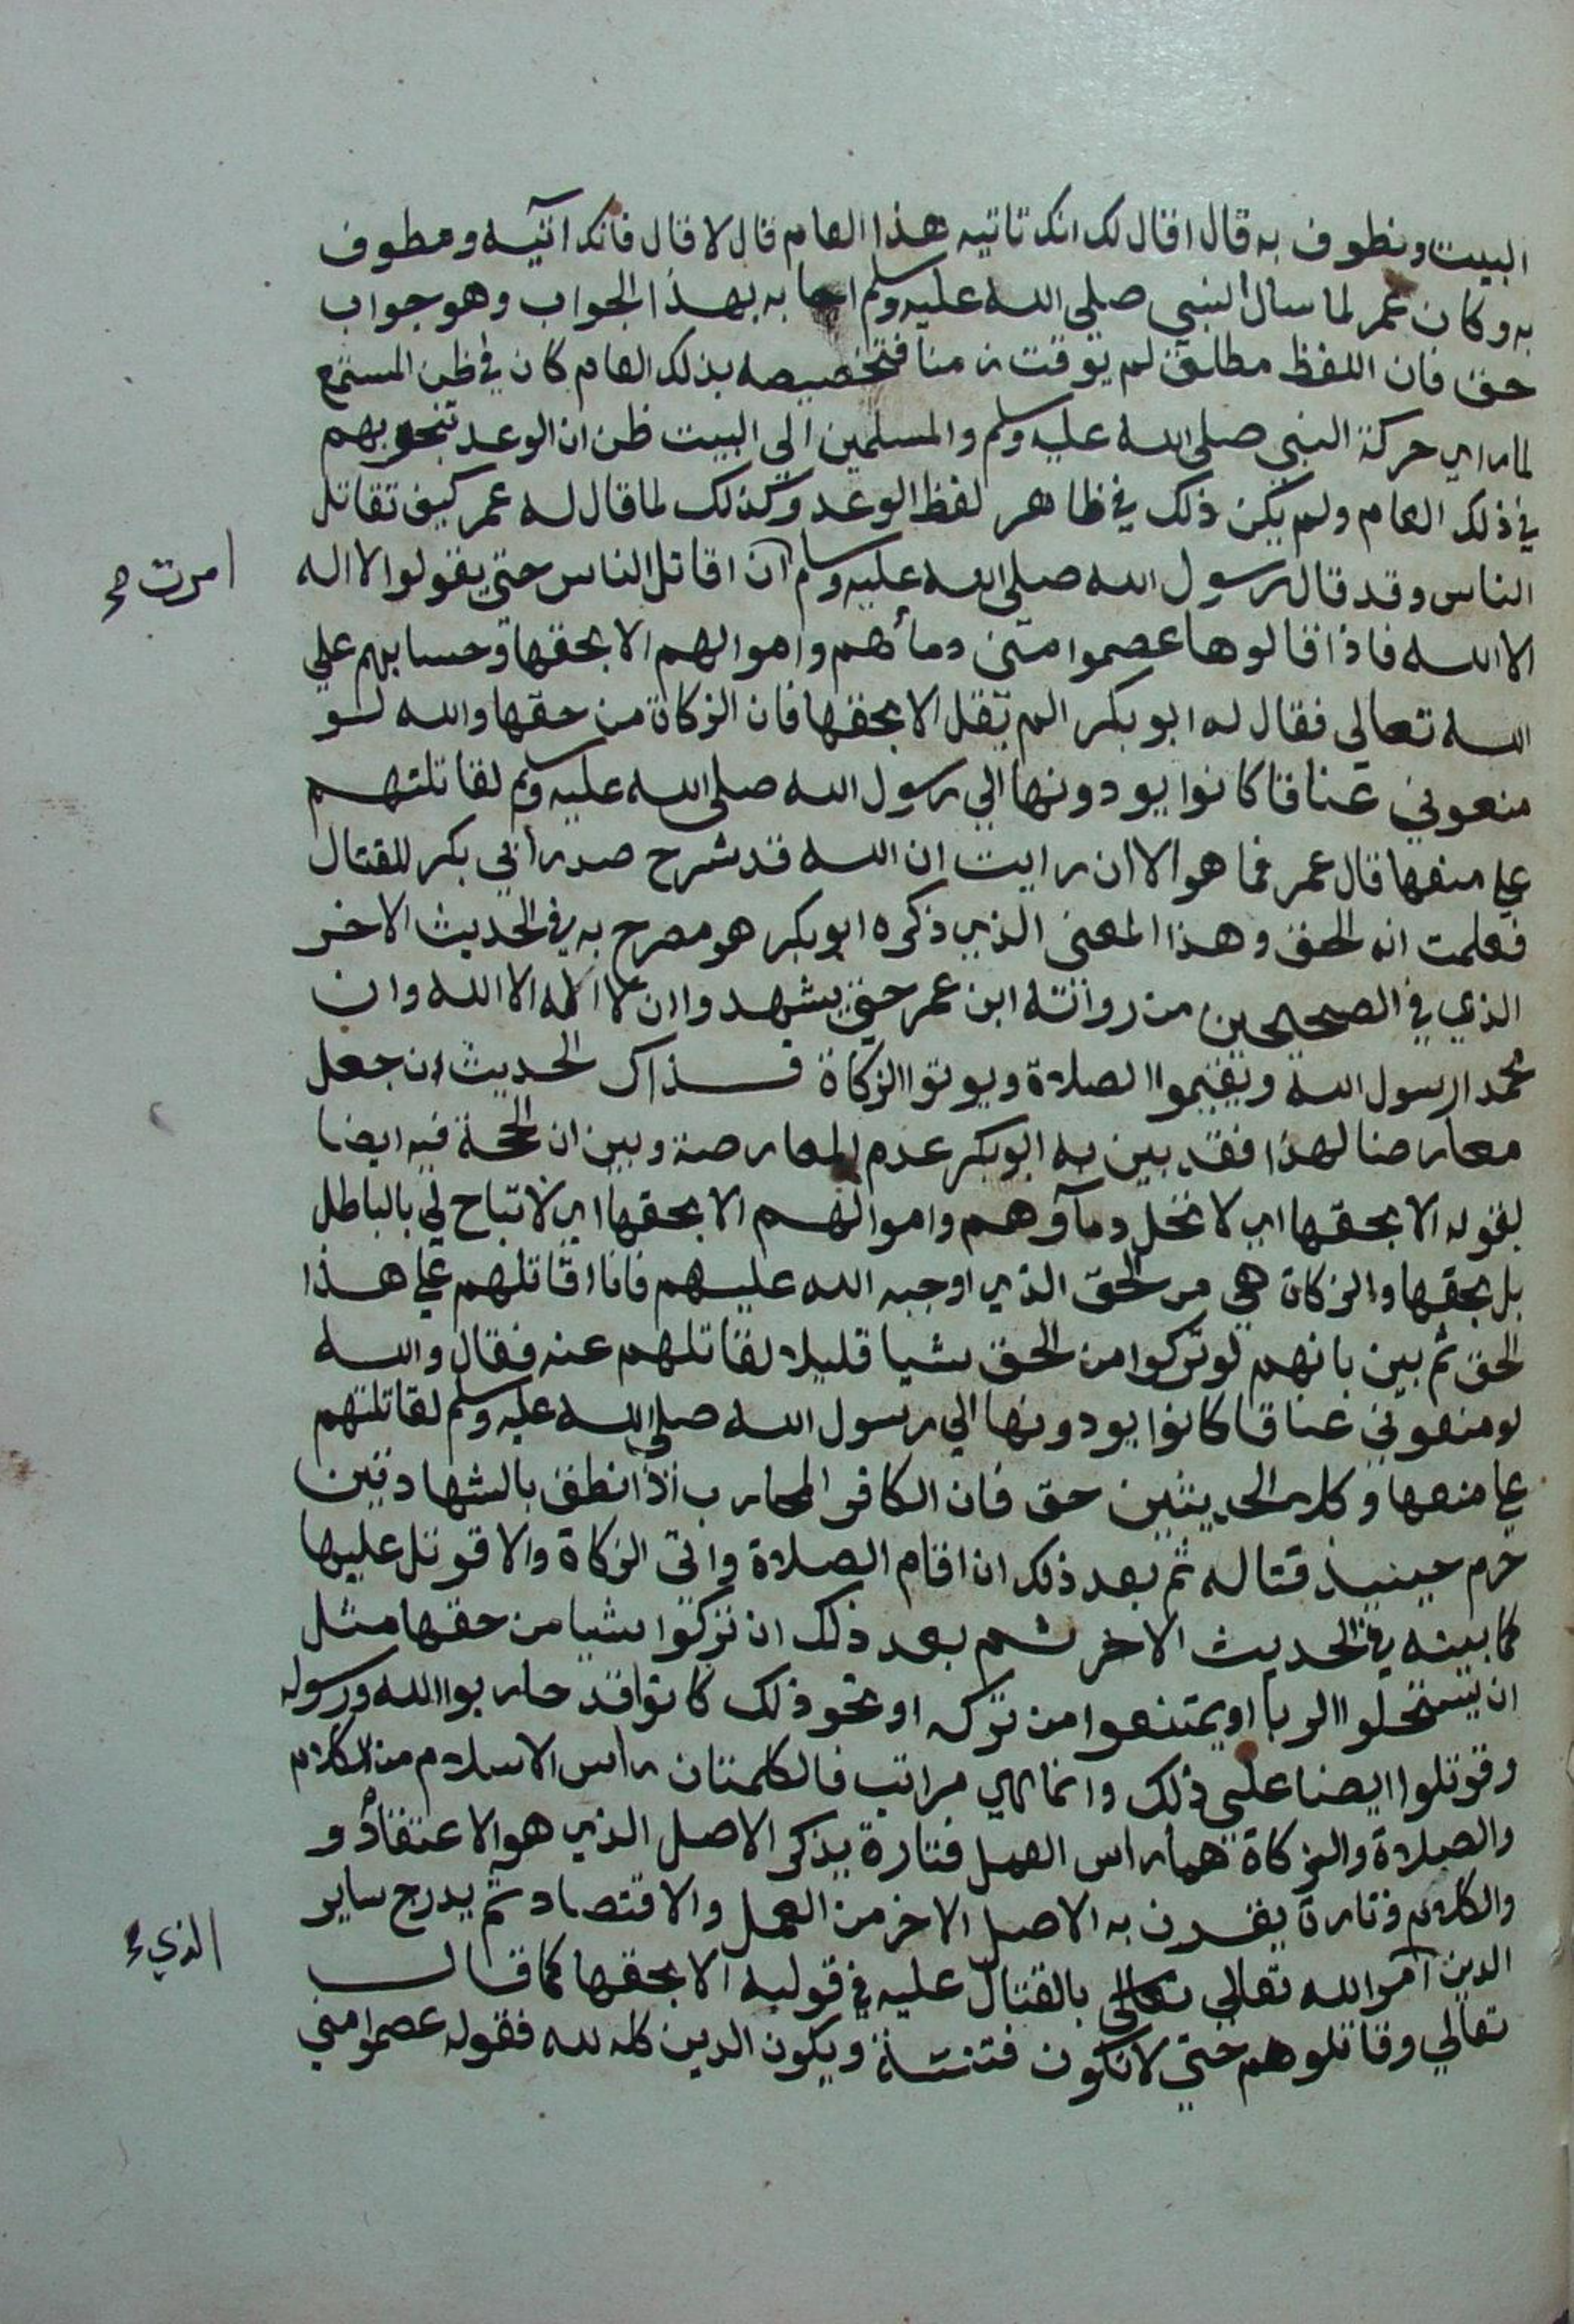 البيت ونطوف به قال اقال لك انك تاتيه هذا العام قال لا قال فانك آتيه ومطوف
به وكان عمر لما سال النبي صلى الله عليه وسلم اجابه بهذا الجواب وهو جواب
حق فان اللفظ مطلق لم يوقت زمنا فتخصيصه بذلك العام كان في ظن المستمع
لما راي حركة النبي صلى الله عليه وسلم والمسلمين الي البيت ظن ان الوعد بهم
في ذلك العام ولم يكن ذلك في ظاهر لفظ الوعد وكذلك لما قال له عمر كيف تقاتل
الناس وقد قال رسول الله صلى الله عليه وسلم ان اقاتل الناس حتي يقولوا لا اله
امرت صح
الا الله فاذا قالوها عصموا مني دمأهم واموالهم الا بحقها وحسابهم علي
الله تعالي فقال له ابو بكر الم يقل الا بحقها فان الزكاة من حقها والله لو
منعوني عناقا كانوا يودونها الي رسول الله صلى الله عليه وسلم لقاتلتهم
علي منعها قال عمر فما هو الا ان رايت ان الله قد شرح صدر ابي بكر للقتال
فعلمت انه الحق وهذا المعني الذي ذكره ابو بكر هو مصرح به في الحديث الاخر
الذي في الصحيحين من رواته ابن عمر حتي يشهدوا ان لا اله الا الله وان
محمدا رسول الله ويقيموا الصلاة ويوتوا الزكاة فذاك الحديث ان جعل
معارضا لهذا فقد بين به ابو بكر عدم المعارضة وبين ان الحجة فيه ايضا
بقوله الا بحقها اي لا تحل دمآوهم واموالهم الا بحقها اي لا تباح لي بالباطل
بل بحقها والزكاة هي من الحق الذي اوجبه الله عليهم فانا اقاتلهم علي هذا
الحق ثم بين بانهم لو تركوا من الحق شيا قليلا لقاتلهم عنه فقال والله
لو منعوني عناقا كانوا يودونها الي رسول الله صلى الله عليه وسلم لقاتلتهم
علي منعها وكلا الحديثين حق فان الكافر المحارب اذا نطق بالشهادتين
حرم حينيذ قتاله ثم بعد ذلك ان اقام الصلاة واتي الزكاة والا قوتل عليها
كما بينه في الحديث الاخر ثم بعد ذلك ان تركوا شيا من حقها مثل
ان يستحلوا الربا او يمتنعوا من تركه او نحو ذلك كانوا قد حاربوا الله ورسوله
وقوتلوا ايضا علي ذلك وانما هي مراتب فالكلمتان راس الاسلام من الكلام
والصلاة والزكاة هما راس العمل فتارة يذكر الاصل الذي هو الاعتقاد و
والكلام وتارة يقرن به الاصل الاخر من العمل والاقتصاد ثم يدرج ساير
الدين امر الله تعالي تعالى بالقتال عليه في قوله الا بحقها كما قال
الذي
تعالي وقاتلوهم حتي لا تكون فتنة ويكون الدين كله لله فقوله عصموا مني